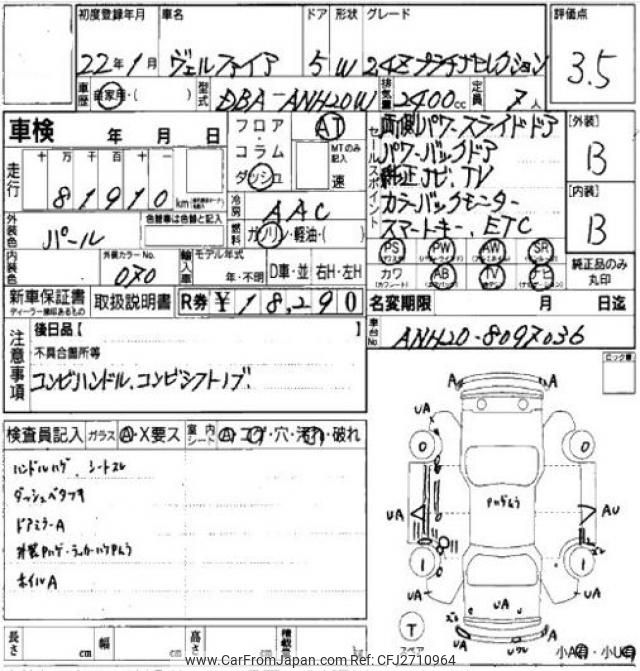 初度登録年月 車名 ドア 形状 グレード 評価点
22年1月 ヴェルファイア 5 W 24Zプラチナセレクション 3.5
車歴 自家用・( ) 型式 DBA-ANH20W 排気量 2400cc 定員 7人
車検 年 月 日
フロア AT
コラム MTのみ記入
ダッシュ 速
セールスポイント
両側パワースライドドア
パワーバックドア
純正ナビ.TV
カラーバックモニター
スマートキー.ETC
[外装]
B
[内装]
B
走行 十 万 千 百 十 一
81910 km
冷房 AAC
外装色 パール 色替車は色替と記入
燃料 ガソリン・軽油・( )
内装色 外装カラーNo. 070
輸入車 モデル年式 年・不明 D車・並 右H・左H
PS PW AW SR
カワ AB TV ナビ
純正品のみ丸印
新車保証書 取扱説明書 R券 ¥18,290
ディーラー捺印あるもの
名変期限 月 日迄
後日品【 】
車台No ANH20-8097036
注意事項
不具合箇所等
コンビハンドル.コンビシフトノブ.
検査員記入 ガラス A・X要ス 室内シート A・コゲ・穴・汚れ・破れ
ハンドルハゲ、シートスレ
ダッシュベタツキ
ドアミラーA
ホイルA
A A
UA
0 0
UA AU
1 1
UA UA
UA
T
スペア
小A・小U
長さ cm 幅 cm 高さ cm 積載量
www.CarFromJapan.com Ref: CFJ2710964